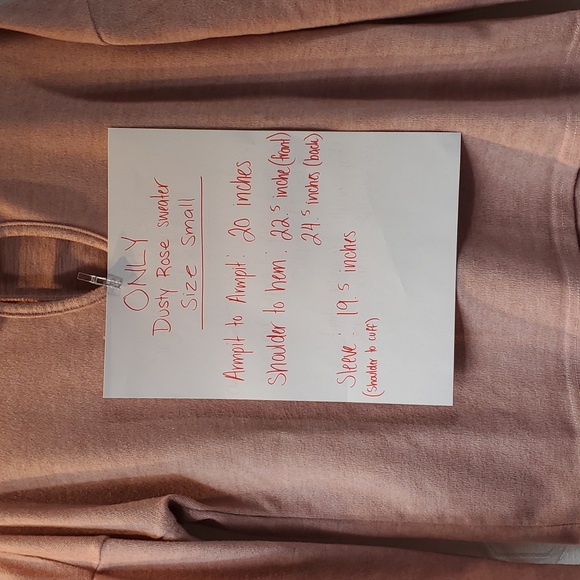 ONLY
Dusty Rose sweater
Size Small
Armpit to Armpit: 20 inches
Shoulder to hem: 22.5 inche (front)
24.5 inches (back)
Sleeve: 19.5 inches
(shoulder to cuff)